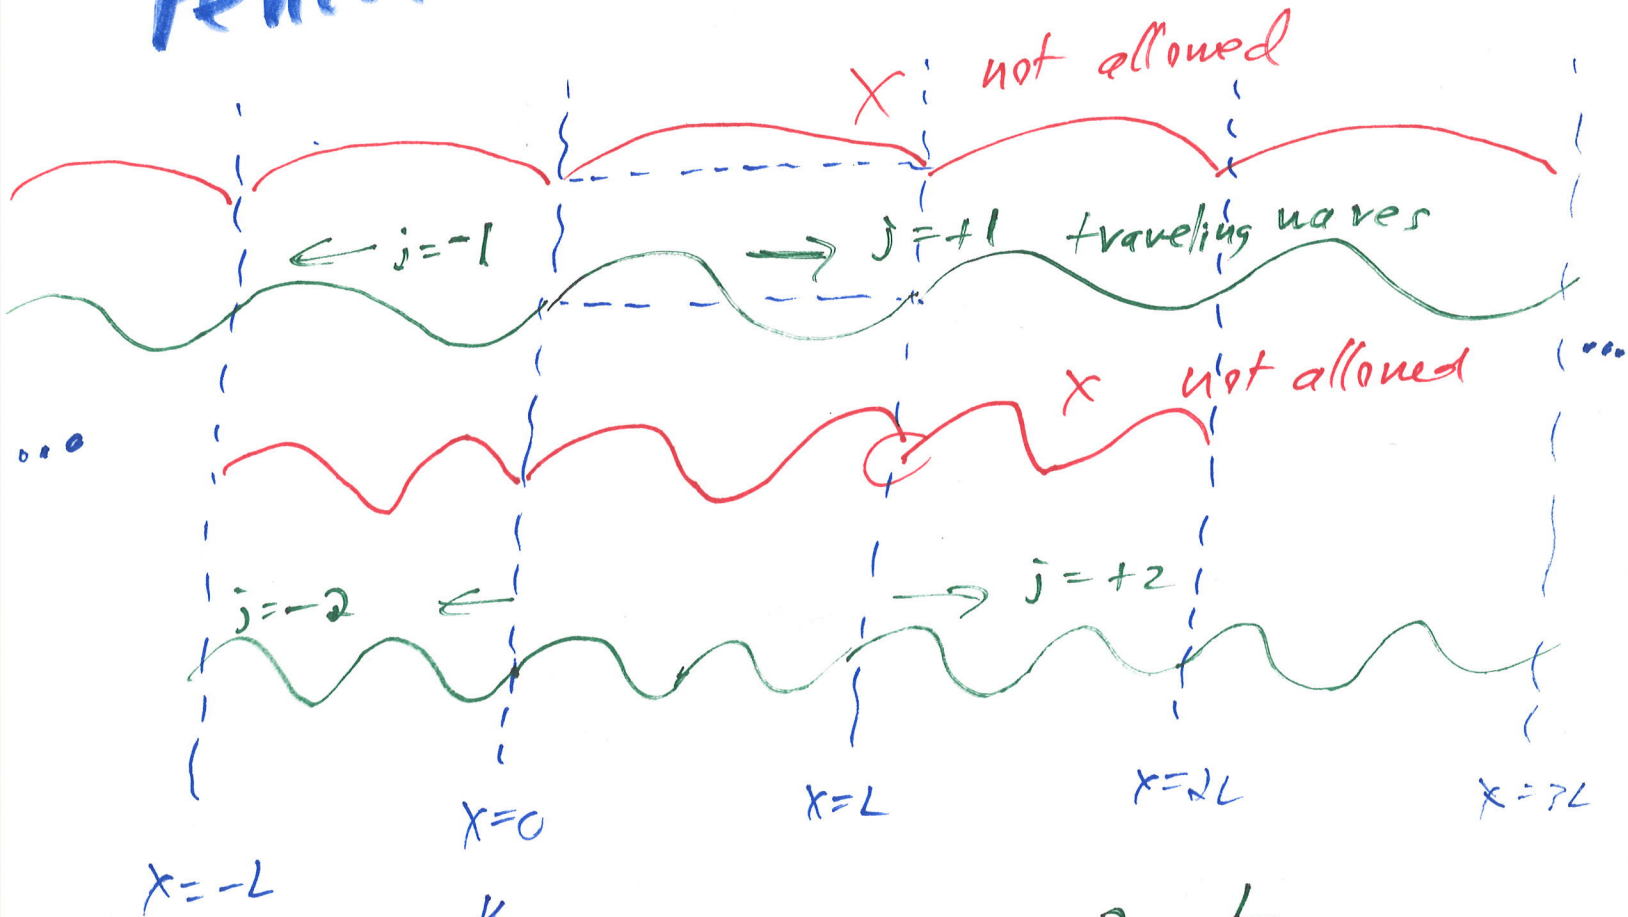 X not allowed
j=-1 j=+1 traveling waves
x not allowed
...
...
j=-2 j=+2
x=0 x=L x=2L x=3L
x=-L